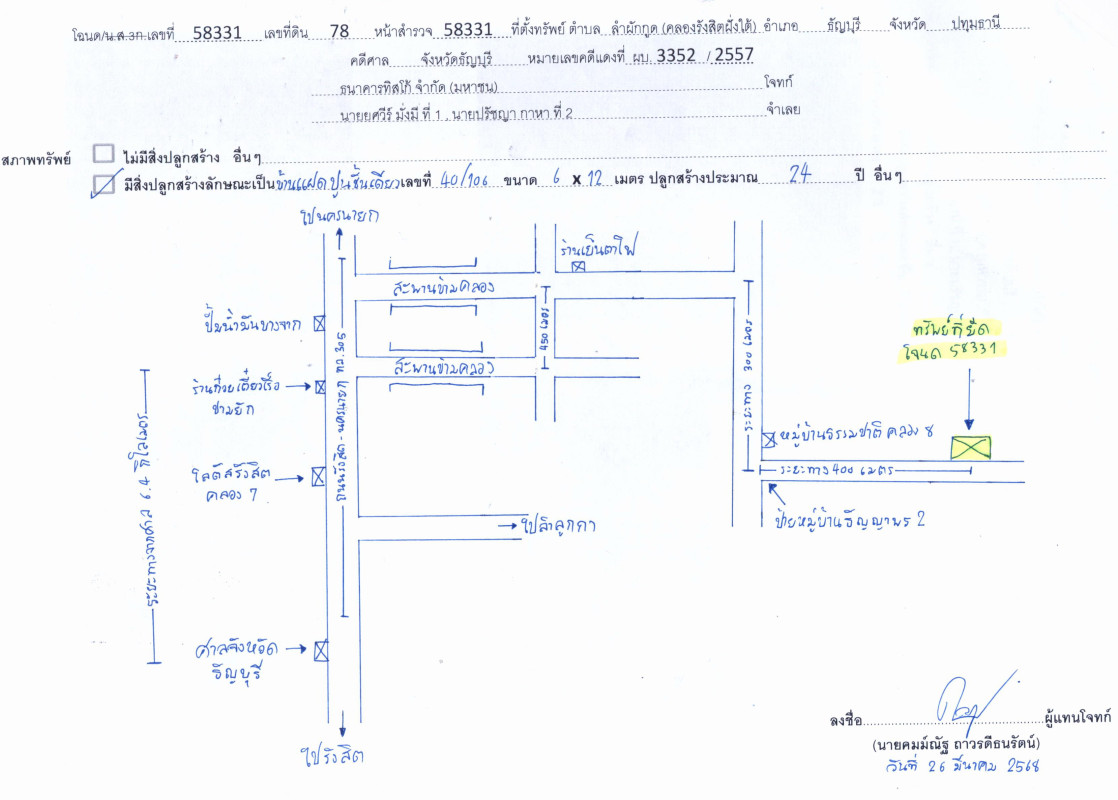 โฉนด/น.ส.3ก.เลขที่ 58331 เลขที่ดิน 78 หน้าสำรวจ 58331 ที่ตั้งทรัพย์ ตำบล ลำผักกูด (คลองรังสิตฝั่งใต้) อำเภอ ธัญบุรี จังหวัด ปทุมธานี
คดีศาล จังหวัดธัญบุรี หมายเลขคดีแดงที่ ผบ. 3352 / 2557
ธนาคารทิสโก้ จำกัด (มหาชน) โจทก์
นายยศวีร์ มั่งมี ที่ 1 , นายปรัชญา กาหา ที่ 2 จำเลย
สภาพทรัพย์ ไม่มีสิ่งปลูกสร้าง อื่นๆ
มีสิ่งปลูกสร้างลักษณะเป็น บ้านแฝดปูนชั้นเดียว เลขที่ 40/106 ขนาด 6 x 12 เมตร ปลูกสร้างประมาณ 24 ปี อื่นๆ
ไปนครนายก
ร้านเย็นตาโฟ
สะพานข้ามคลอง
ปั๊มน้ำมันบางจาก
450 เมตร
ระยะทาง 300 เมตร
ทรัพย์ที่ยึด
โฉนด 58331
ถนนรังสิต-นครนายก ทล.305
สะพานข้ามคลอง
ร้านก๋วยเตี๋ยวเรือ
ชามยัก
ระยะทางจากศาล 6.4 กิโลเมตร
หมู่บ้านธรรมชาติ คลอง 8
โลตัสรังสิต
คลอง 7
ระยะทาง 400 เมตร
ไปลำลูกกา
ป้ายหมู่บ้านธัญญาพร 2
ศาลจังหวัด
ธัญบุรี
ไปรังสิต
ลงชื่อ ผู้แทนโจทก์
(นายคมม์ณัฐ ถาวรดีธนรัตน์)
วันที่ 26 มีนาคม 2568